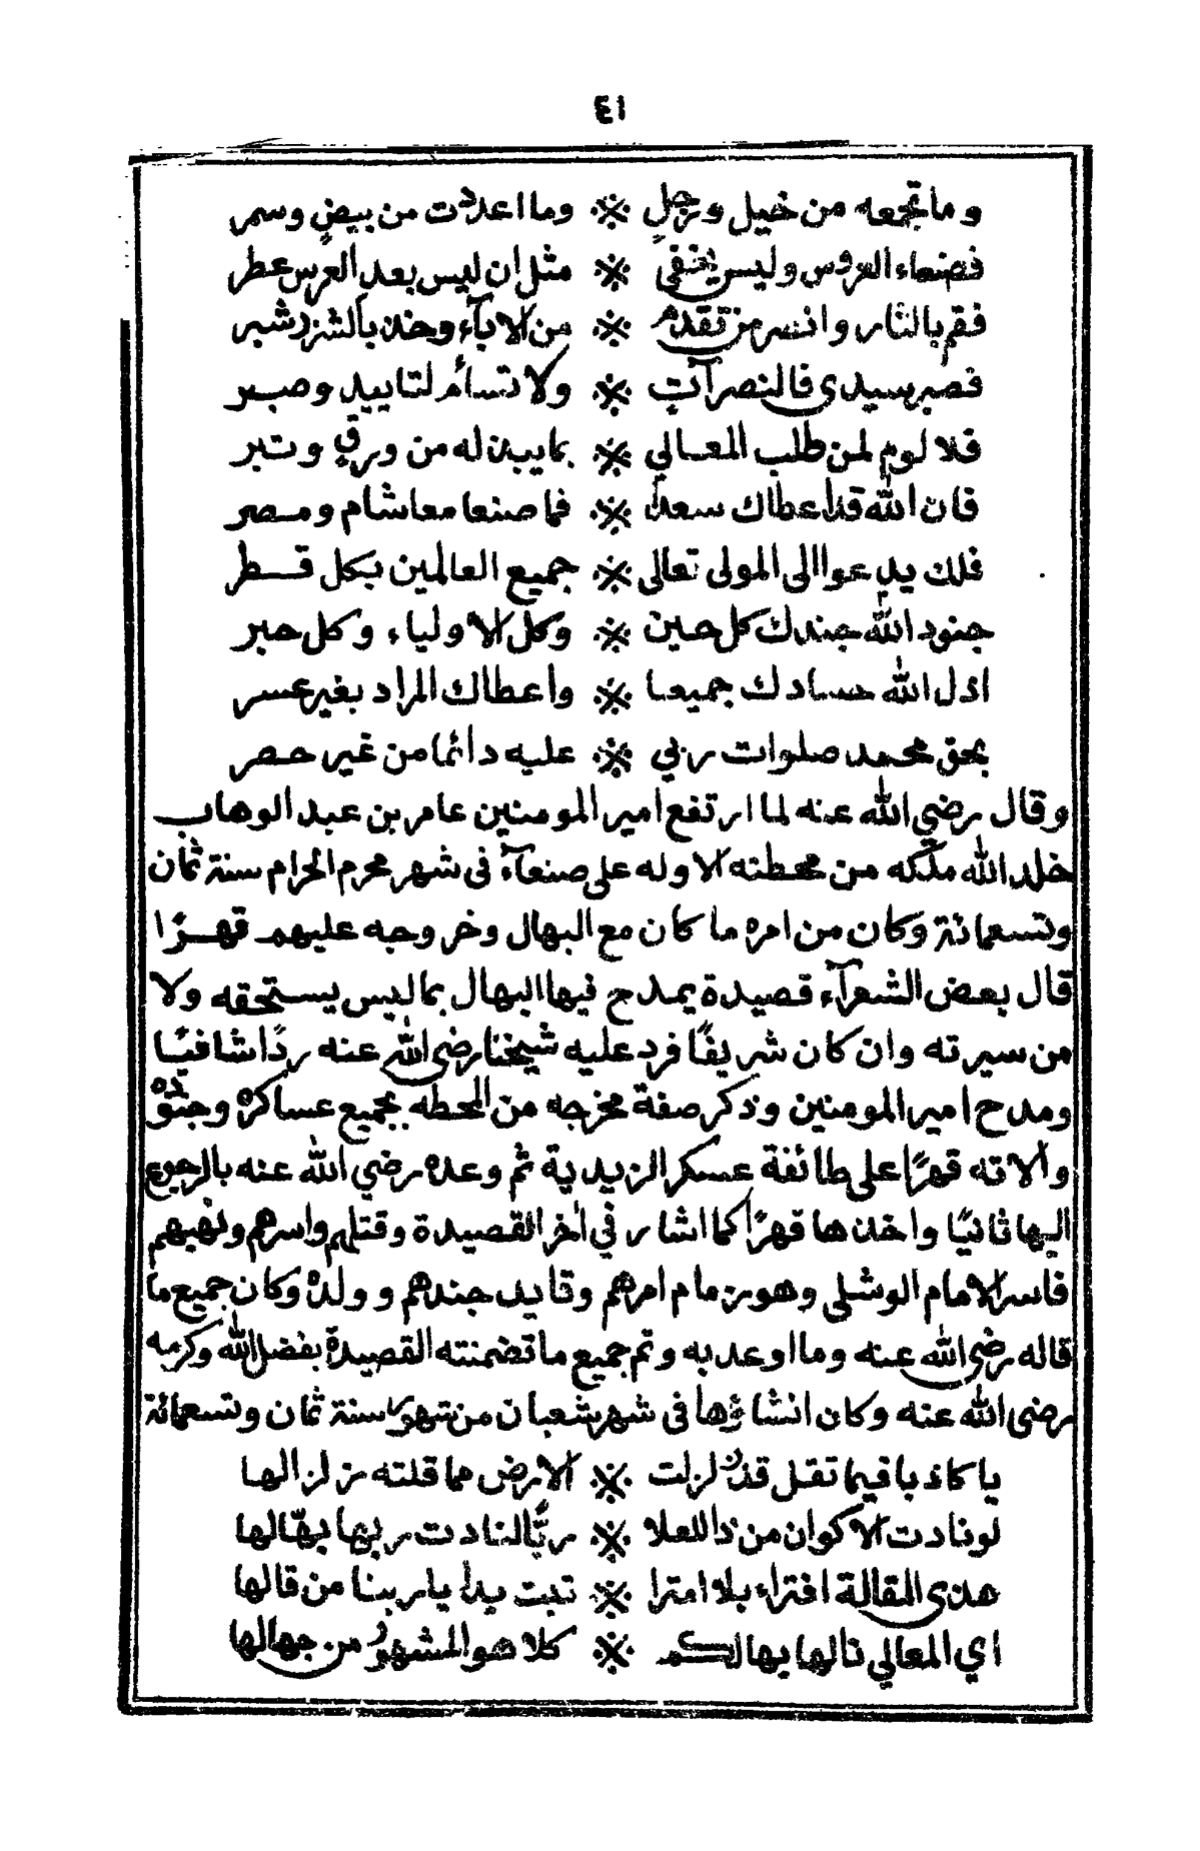 ٤١
وما تجمعه من خيل ورجل ※ وما اعددت من بيض وسمر
فصنعاء العروس وليس يخفى ※ مثل ان ليس بعد العرس عطر
فقم بالثار وانس من تقدم ※ من الابآء وخذ بالشزر شبر
فصبر سيدى فالنصر آت ※ ولا تسأم لتاييد وصبر
فلا لوم لمن طلب المعالي ※ بما يبذله من ورق وتبر
فان الله قد اعطاك سعدا ※ فما صنعا معا شام ومصر
فلك يدعوا الى المولى تعالى ※ جميع العالمين بكل قطر
جنود الله جندك كل حين ※ وكل الاولياء وكل حبر
اذل الله حسادك جميعا ※ واعطاك المراد بغير عسر
بحق محمد صلوات ربي ※ عليه دائما من غير حصر
وقال رضي الله عنه لما ارتفع امير المومنين عامر بن عبد الوهاب
خلد الله ملكه من محطته الاوله على صنعآء فى شهر محرم الحرام سنة ثمان
وتسعمائة وكان من امره ما كان مع البهال وخروجه عليهم قهرًا
قال بعض الشعرآء قصيدة يمدح فيها البهال بما ليس يستحقه ولا
من سيرته وان كان شريفًا فرد عليه شيخنا رضى الله عنه ردًا شافيًا
ومدح امير المومنين وذكر صفة مخرجه من المحطه بجميع عساكره وجنوده
وآلاته قهرًا على طائفة عسكر الزيدية ثم وعده رضي الله عنه بالرجوع
اليها ثانيًا واخذها قهرًا كما اشار في اخر القصيدة وقتلهم واسرهم ونهبهم
فاسر الامام الوشلى وهو زمام امرهم وقايد جندهم وولده وكان جميع ما
قاله رضى الله عنه وما اوعد به وتم جميع ما تضمنته القصيدة بفضل الله وكرمه
رضى الله عنه وكان انشاؤها فى شهر شعبان من شهور سنة ثمان وتسعمائة
يا كاذبا فيما تقل قد زلزلت ※ الارض مما قلته زلزالها
لو نادت الاكوان من ذا للعلا ※ ربًّا لنادت ربها بهّالها
هذى المقالة افتراء بلا امترا ※ تبت يدا يا ربنا من قالها
اي المعالي نالها بهالكم ※ كلا هو المشهور من جهالها